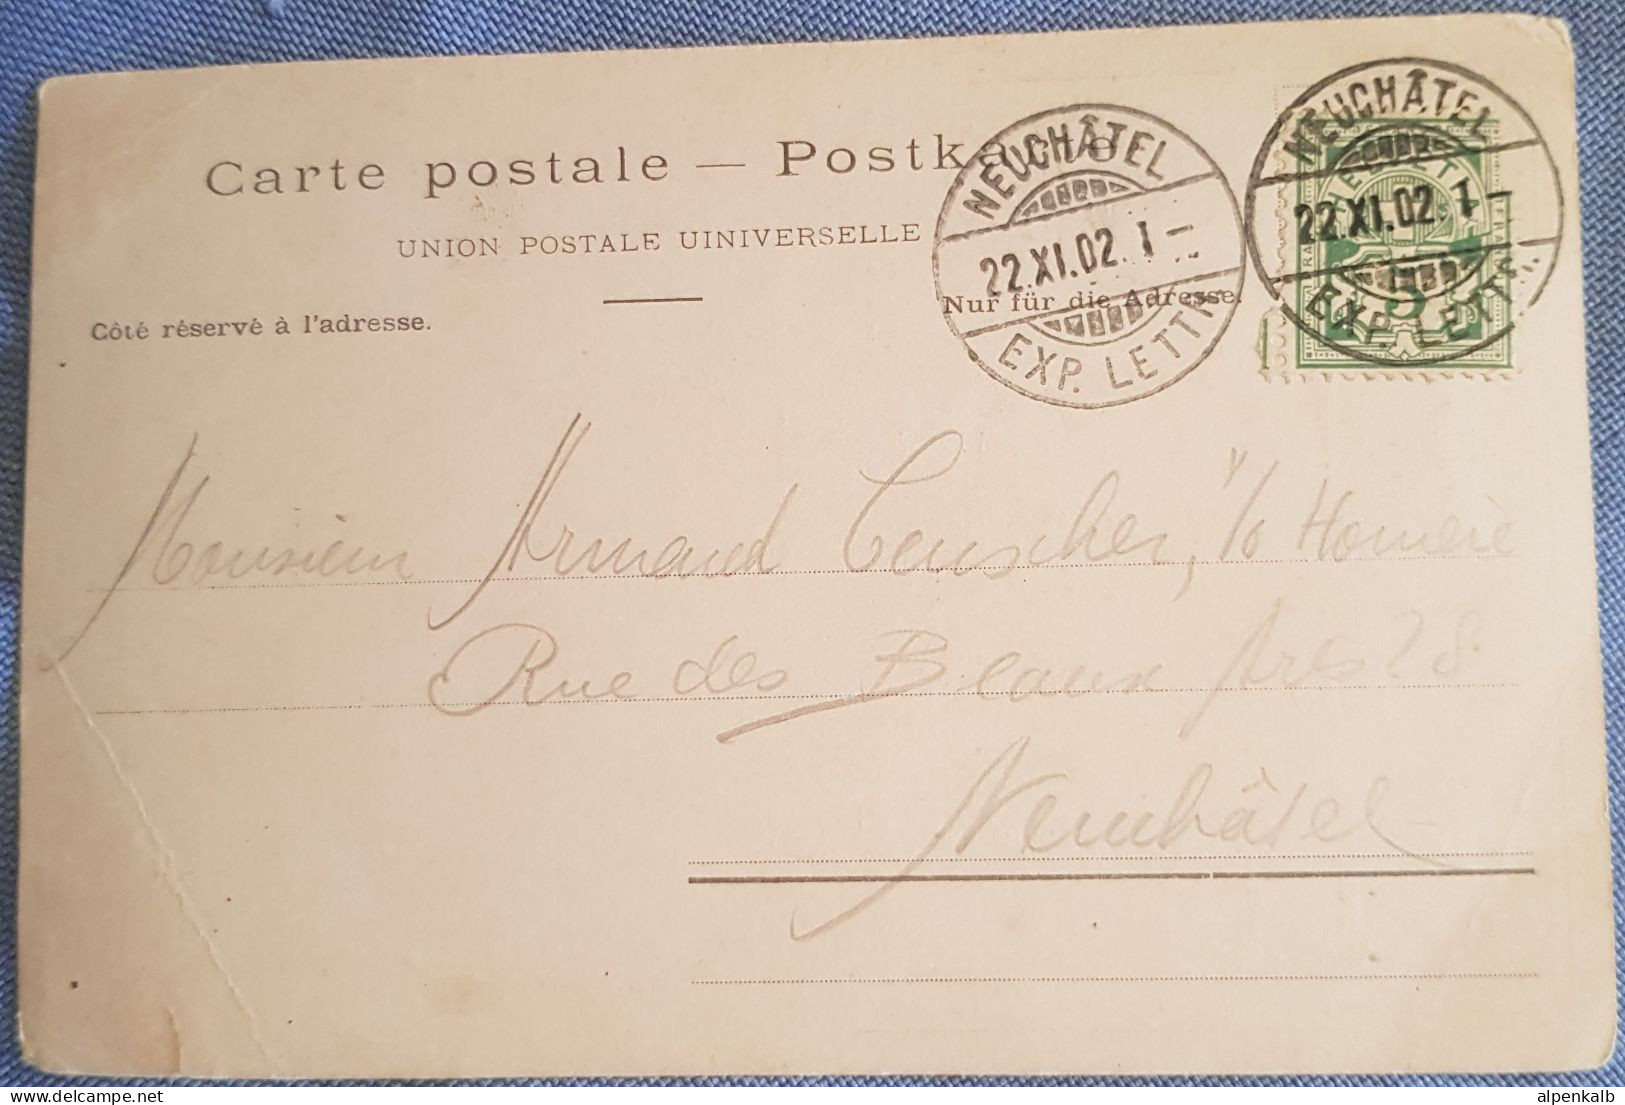 Carte postale — Postkarte
UNION POSTALE UINIVERSELLE
Côté réservé à l'adresse.
Nur für die Adresse.
NEUCHÂTEL
22.XI.02. I –
EXP. LETTR.
NEUCHÂTEL
22.XI.02. I –
EXP. LETTR.
5
Monsieur Armand
Rue des Beaux Arts 28
Neuchâtel
delcampe.net
alpenkalb